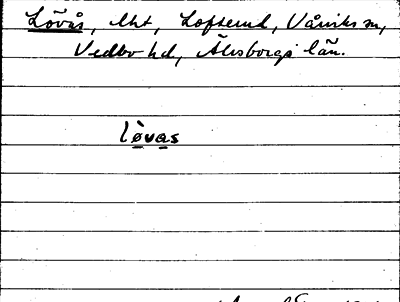 Lövås, lht, Lofterud, Vårviks sn,
Vedbo hd, Älvsborgs län.
lø̀vas